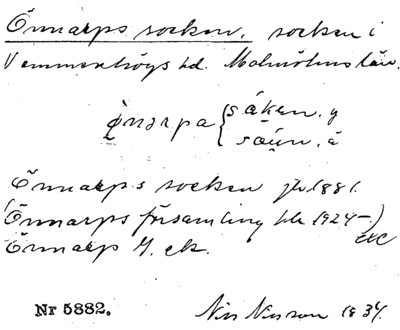 Önnarps socken. socken i
Vemmenhögs hd. Malmöhus län.
sáken. y
ǫ̀nərpa {
sæu̇n. ä
Önnarps socken jb 1881.
(Önnarps församling jb 1924-)
Önnarp Y. ek. EVC
Nr 5882. Nils Nilsson 1934.